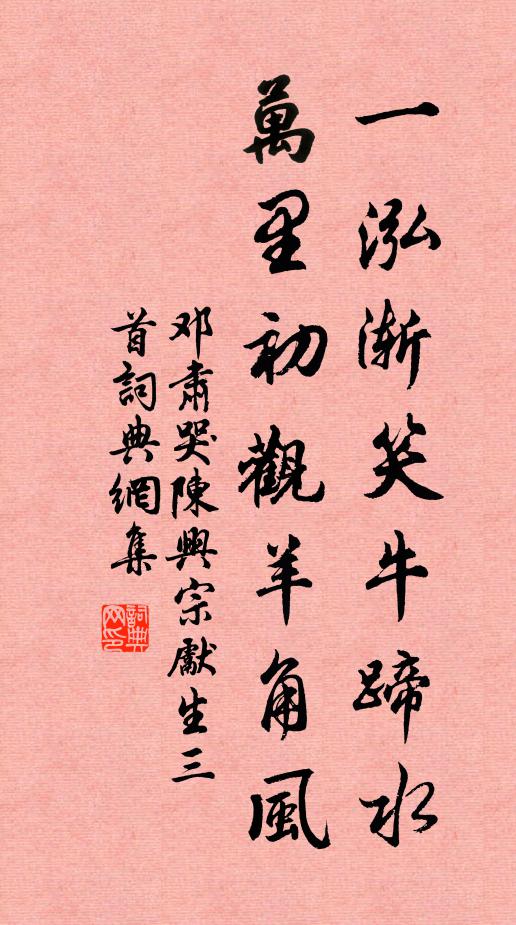 一泓渐笑牛蹄水
萬里初觀羊角風
邓肅哭陳興宗獻生三
首詞典網集
詞典
网印